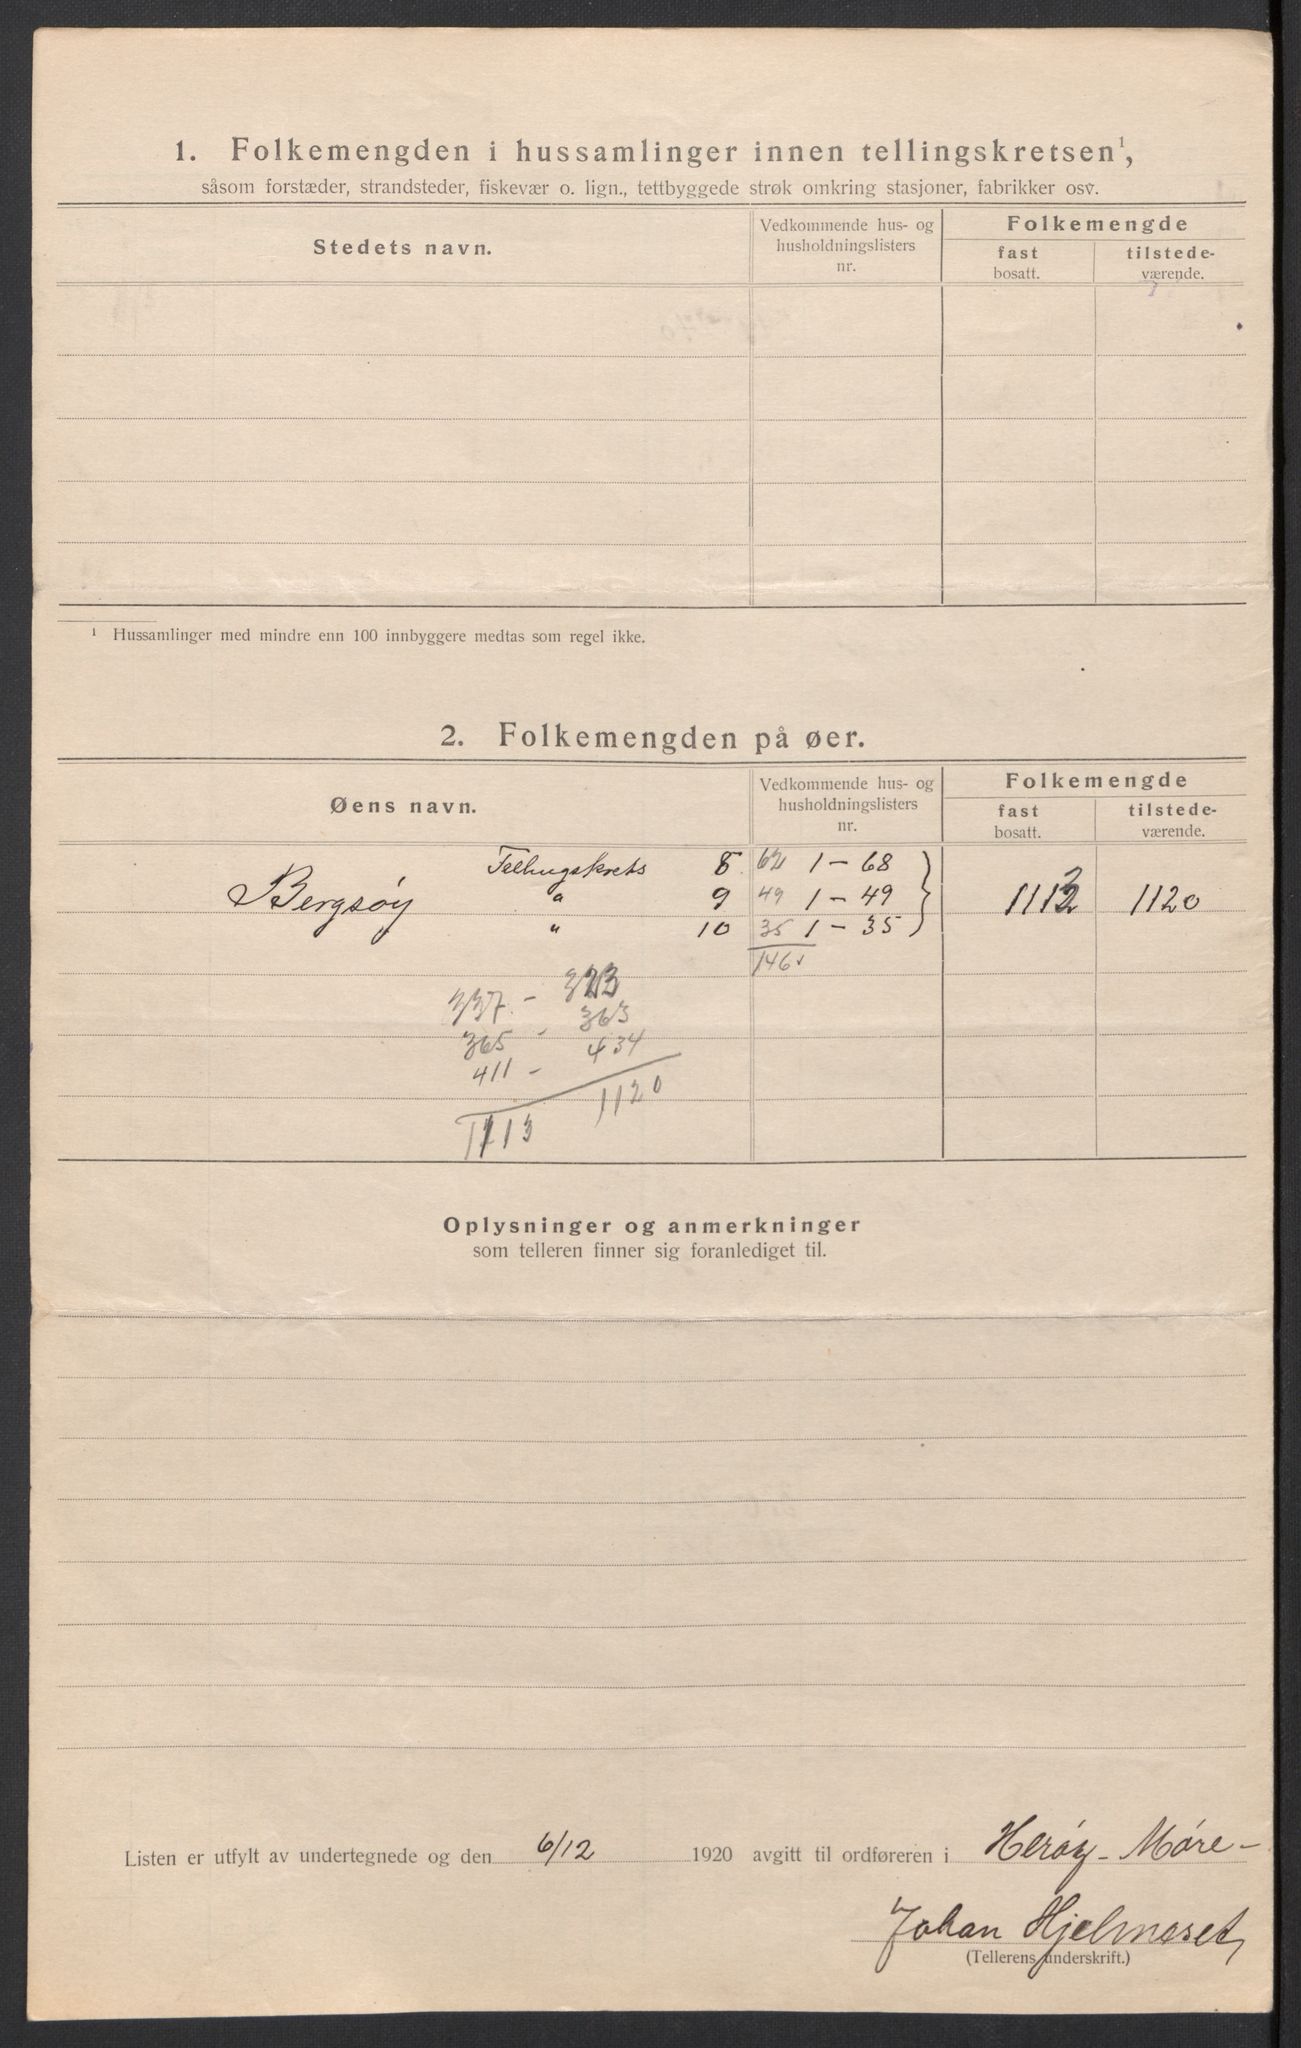 1. Folkemengden i hussamlinger innen tellingskretsen¹,
såsom forstæder, strandsteder, fiskevær o. lign., tettbyggede strøk omkring stasjoner, fabrikker osv.
Stedets navn.
Vedkommende hus- og
husholdningslisters
nr.
Folkemengde
fast
bosatt.
tilstede-
værende.
¹ Hussamlinger med mindre enn 100 innbyggere medtas som regel ikke.
2. Folkemengden på øer.
Øens navn.
Vedkommende hus- og
husholdningslisters
nr.
Folkemengde
fast
bosatt.
tilstede-
værende.
Tellingskrets 8 62 1 – 68
Bergsøy " 9 49 1 – 49 1113 1120
" 10 35 1 – 35
146
337 – 323
365 – 363
411 – 434
1113 1120
Oplysninger og anmerkninger
som telleren finner sig foranlediget til.
Listen er utfylt av undertegnede og den 6/12 1920 avgitt til ordføreren i Herøy – Møre –
Johan Hjelmeset
(Tellerens underskrift.)